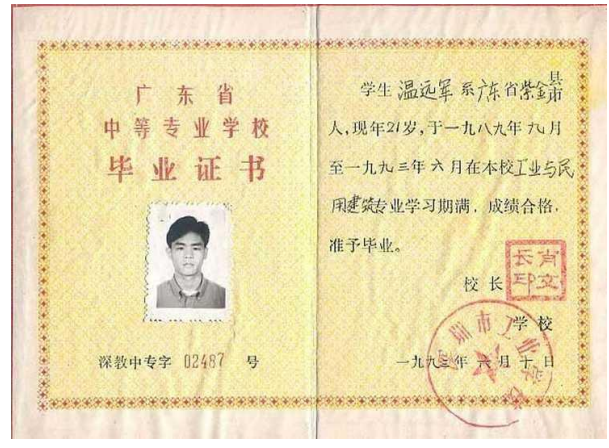 广东省
中等专业学校
毕业证书
深教中专字 02487 号
学生 温远军 系广东省紫金县市
人,现年21岁,于一九八九年九月
至一九九三年六月在本校工业与民
用建筑专业学习期满,成绩合格,
准予毕业。
校长
学校
一九九三年六月十日
深圳市工业学校